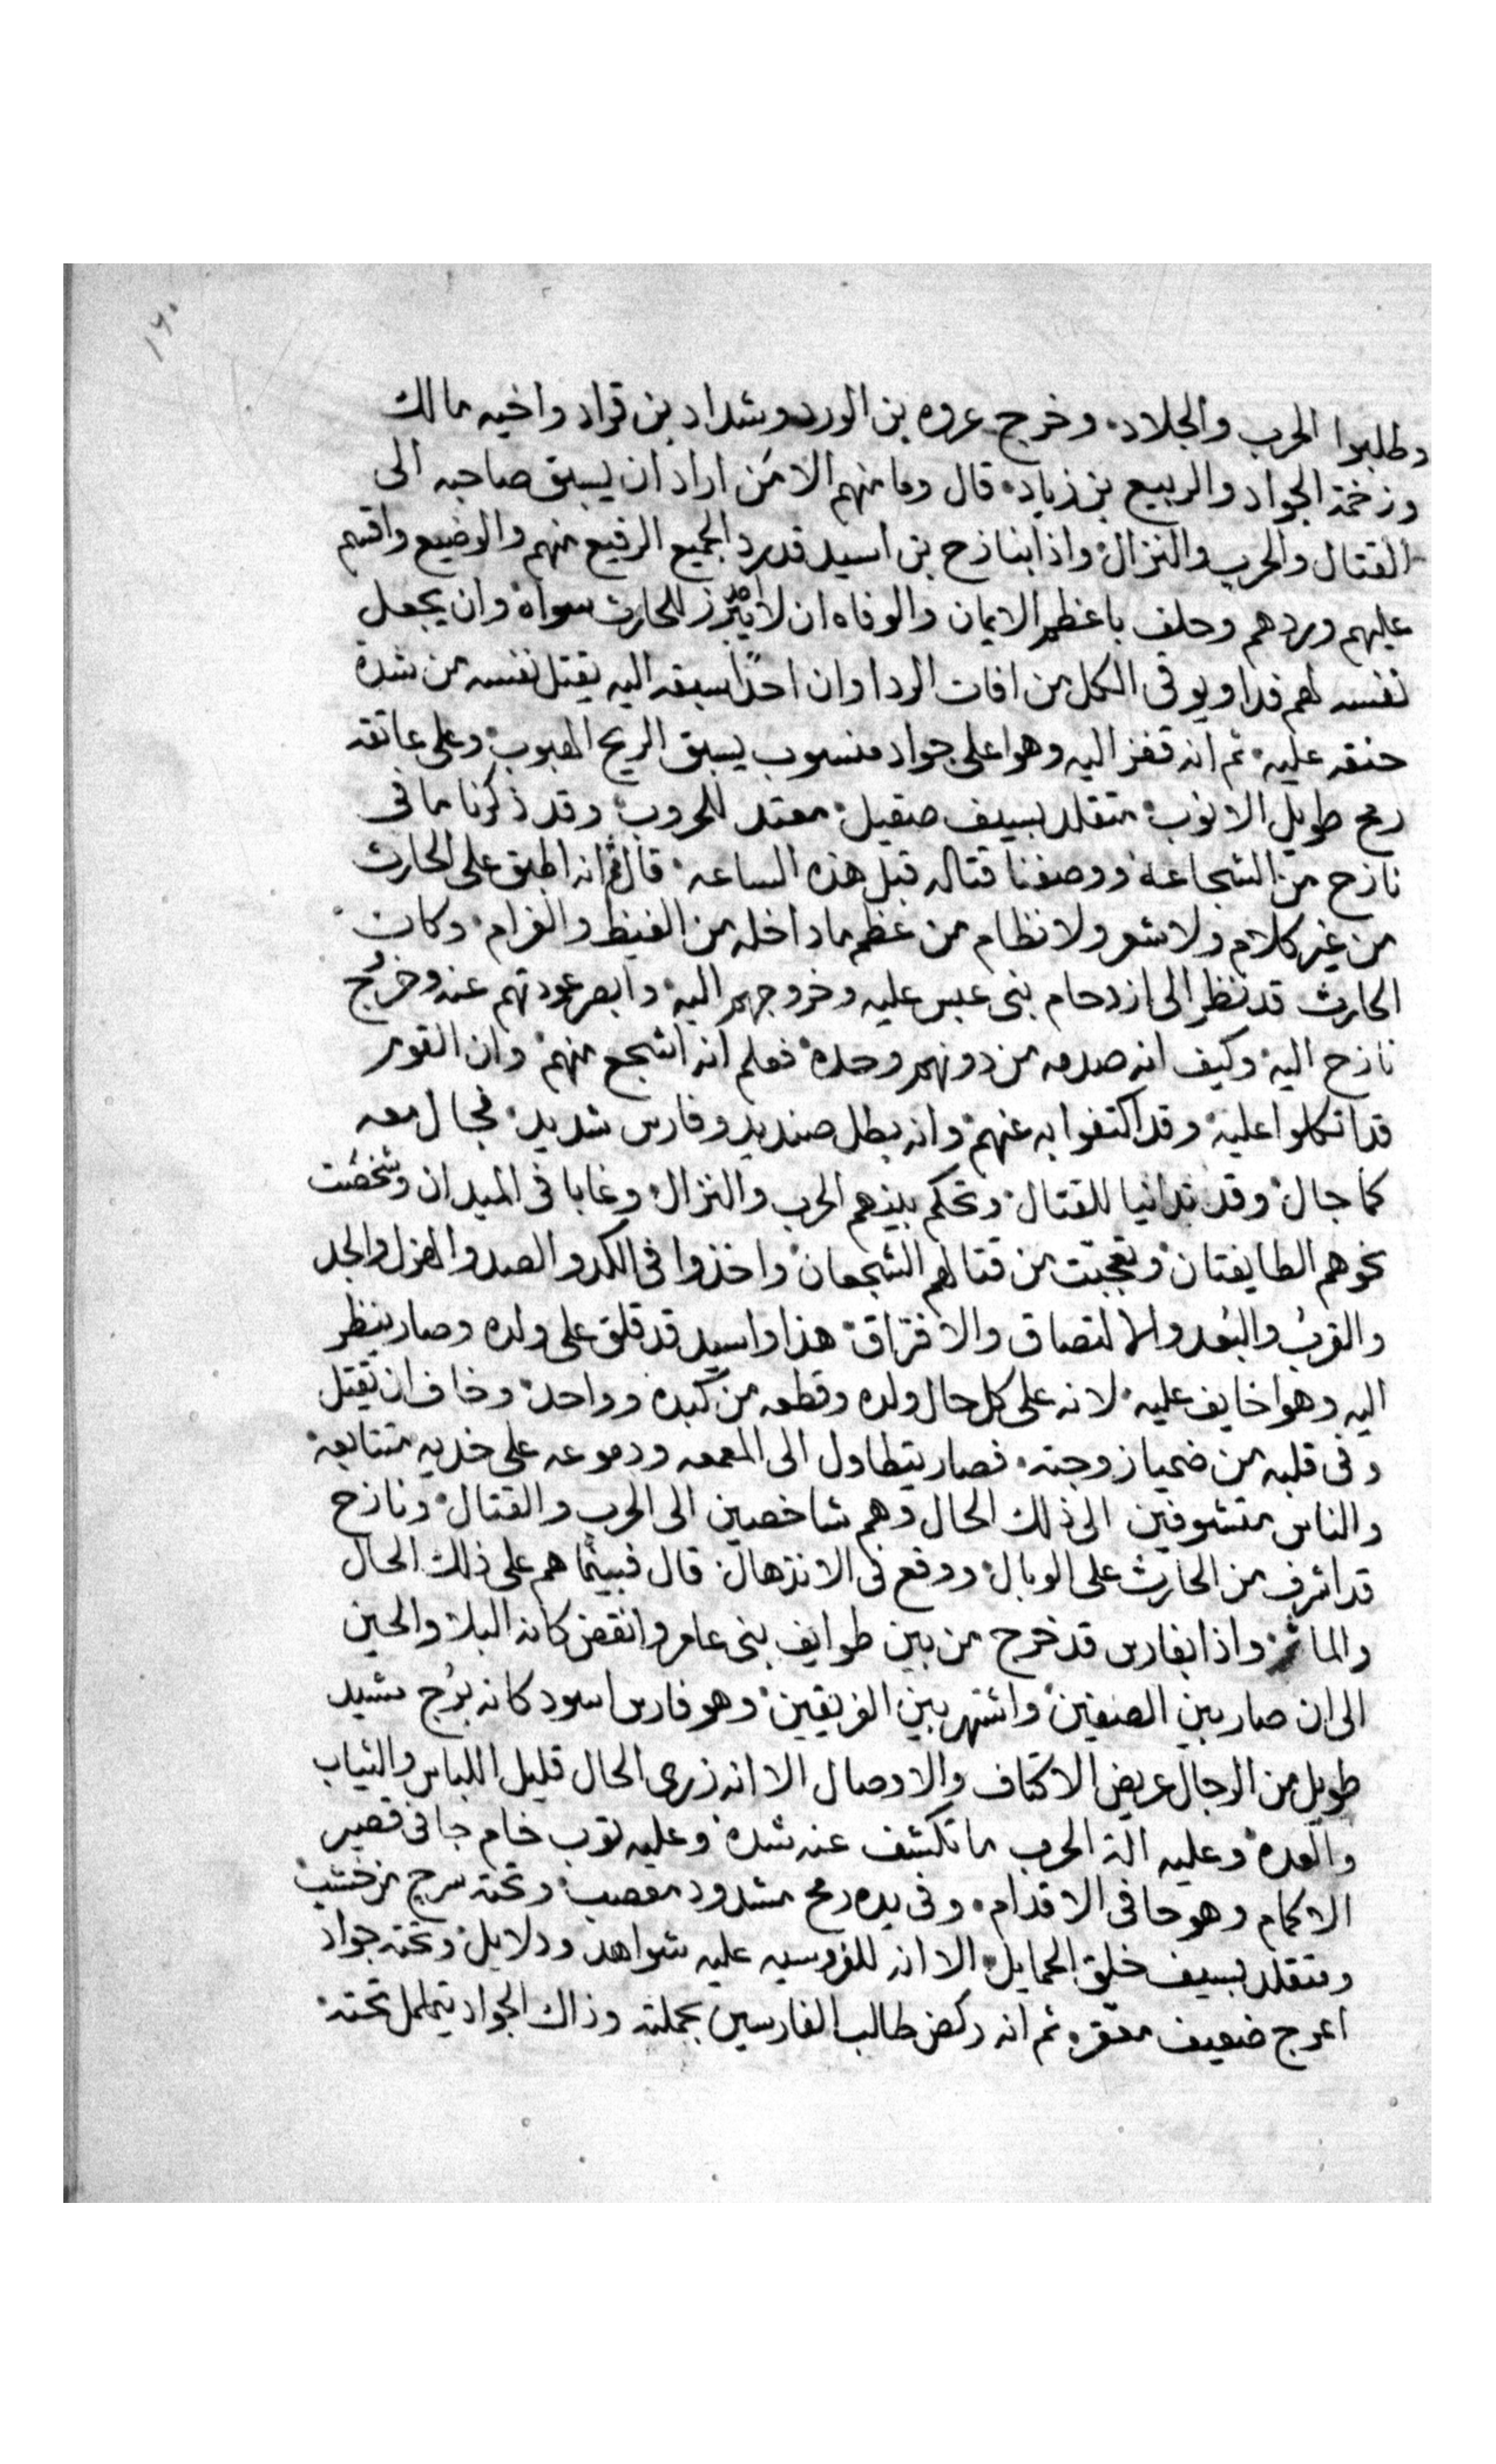 ١٢٠
وطلبوا الحرب والجلاد، وخرج عروه بن الورد وشداد بن قراد واخيه مالك
وزخمة الجواد والربيع بن زياد، قال وما منهم الا من اراد ان يسبق صاحبه الى
القتال والحرب والنزال، واذا بنازح بن اسيد قد رد الجميع الرفيع منهم والوضيع واقسم
عليهم وردهم وحلف باعظم الايمان والوفاه ان لا يبرز للحارث سواه، وان يجعل
نفسه لهم فدا ويوقى الكل من افات الردا وان احدًا سبقه اليه يقتل نفسه من شدة
حنقه عليه، ثم انه قفز اليه وهوا على جواد منسوب يسبق الريح الهبوب، وعلى عاتقه
رمح طويل الانوب، متقلد بسيف صقيل، معتد للحروب، وقد ذكرنا ما فى
نازح من الشجاعة ووصفنا قتاله قبل هذه الساعه، قال ثم انه اطبق على الحارث
من غير كلام ولا شعر ولا نظام من عظم ما داخله من الغيظ والغرام، وكان
الحارث قد نظر الى ازدحام بنى عبس عليه وخروجهم اليه، وابصر عودتهم عنه وخروج
نازح اليه، وكيف انه صدمه من دونهم وحده، فعلم انه اشجع منهم، وان القوم
قد اتكلوا عليه، وقد اكتفوا به عنهم، وانه بطل صنديد وفارس شديد، فجال معه
كما جال، وقد تدانيا للقتال، وتحكم بينهم الحرب والنزال، وغابا فى الميدان وشخصت
نحوهم الطايفتان، وتعجبت من قتالهم الشجعان، واخذوا فى الكد والصد والهزل والجد
والقرب والبعد والالتصاق والافتراق، هذا واسيد قد قلق على ولده وصار ينظر
اليه وهوا خايف عليه، لانه على كل حال ولده وقطعه من كبده وواحده، وخاف ان يقتل
وفى قلبه من ضميا زوجته، فصار يتطاول الى المعمعه ودموعه على خديه متتابعه،
والناس متشوفين الى ذلك الحال وهم شاخصين الى الحرب والقتال، ونازح
قد اشرف من الحارث على الوبال، ووقع فى الانذهال، قال فبينما هم على ذلك الحال
واذا بفارس قد خرج من بين طوايف بنى عامر وانقض كانه البلا والحين
الى ان صار بين الصفين، واشتهر بين الفريقين، وهو فارس اسود كانه برج مشيد
طويل من الرجال عريض الاكتاف والاوصال الا انه زرى الحال قليل اللباس والثياب
والعده، وعليه الة الحرب ما تكشف عنه شده، وعليه ثوب خام جافى قصير
الاكمام وهو حافى الاقدام، وفى يده رمح مشدود معصب، وتحته سرج من خشب،
ومتقلد بسيف خلق الحمايل، الا انه للفروسيه عليه شواهد ودلايل، وتحته جواد
اعرج ضعيف معقره ثم انه ركض طالب الفارسين بحملته وذاك الجواد يتململ تحته،